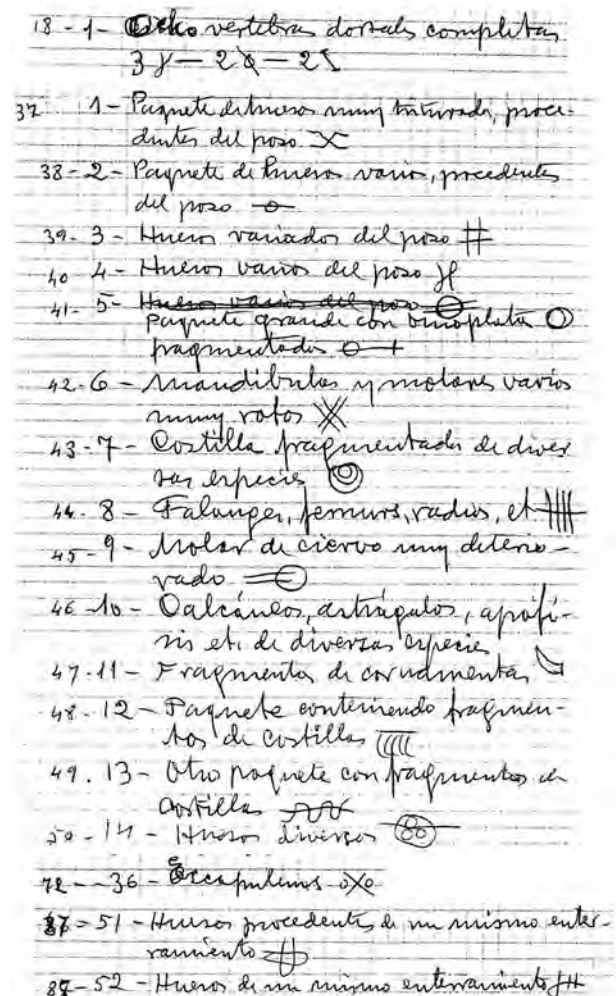 18 - 1 - Ocho vertebras dorsales completas
3 — 2 — 2
37 1 - Paquete de huesos muy triturados, proce-
dentes del poso
38 - 2 - Paquete de huesos varios, procedentes
del poso
39 - 3 - Huesos variados del poso
40 4 - Huesos varios del poso
41 - 5 - Huesos varios del poso
Paquete grande con omoplatos
fragmentados
42 - 6 - Mandibulas y molares varios
muy rotos
43 - 7 - Costilla fragmentada de diver
sas especies
44 - 8 - Falanges, femurs, radios, et.
45 - 9 - Molar de ciervo muy deterio-
rado
46 - 10 - Calcáneos, astrágalos, apofi-
sis et. de diversas especies
47 - 11 - Fragmentos de cornamentas
48 - 12 - Paquete conteniendo fragmen-
tos de costillas
49 . 13 - Otro paquete con fragmentos de
costillas
50 - 14 - Huesos diversos
72 - - 36 -
- 51 - Huesos procedentes de un mismo enter-
ramiento
- 52 - Huesos de un mismo enterramiento